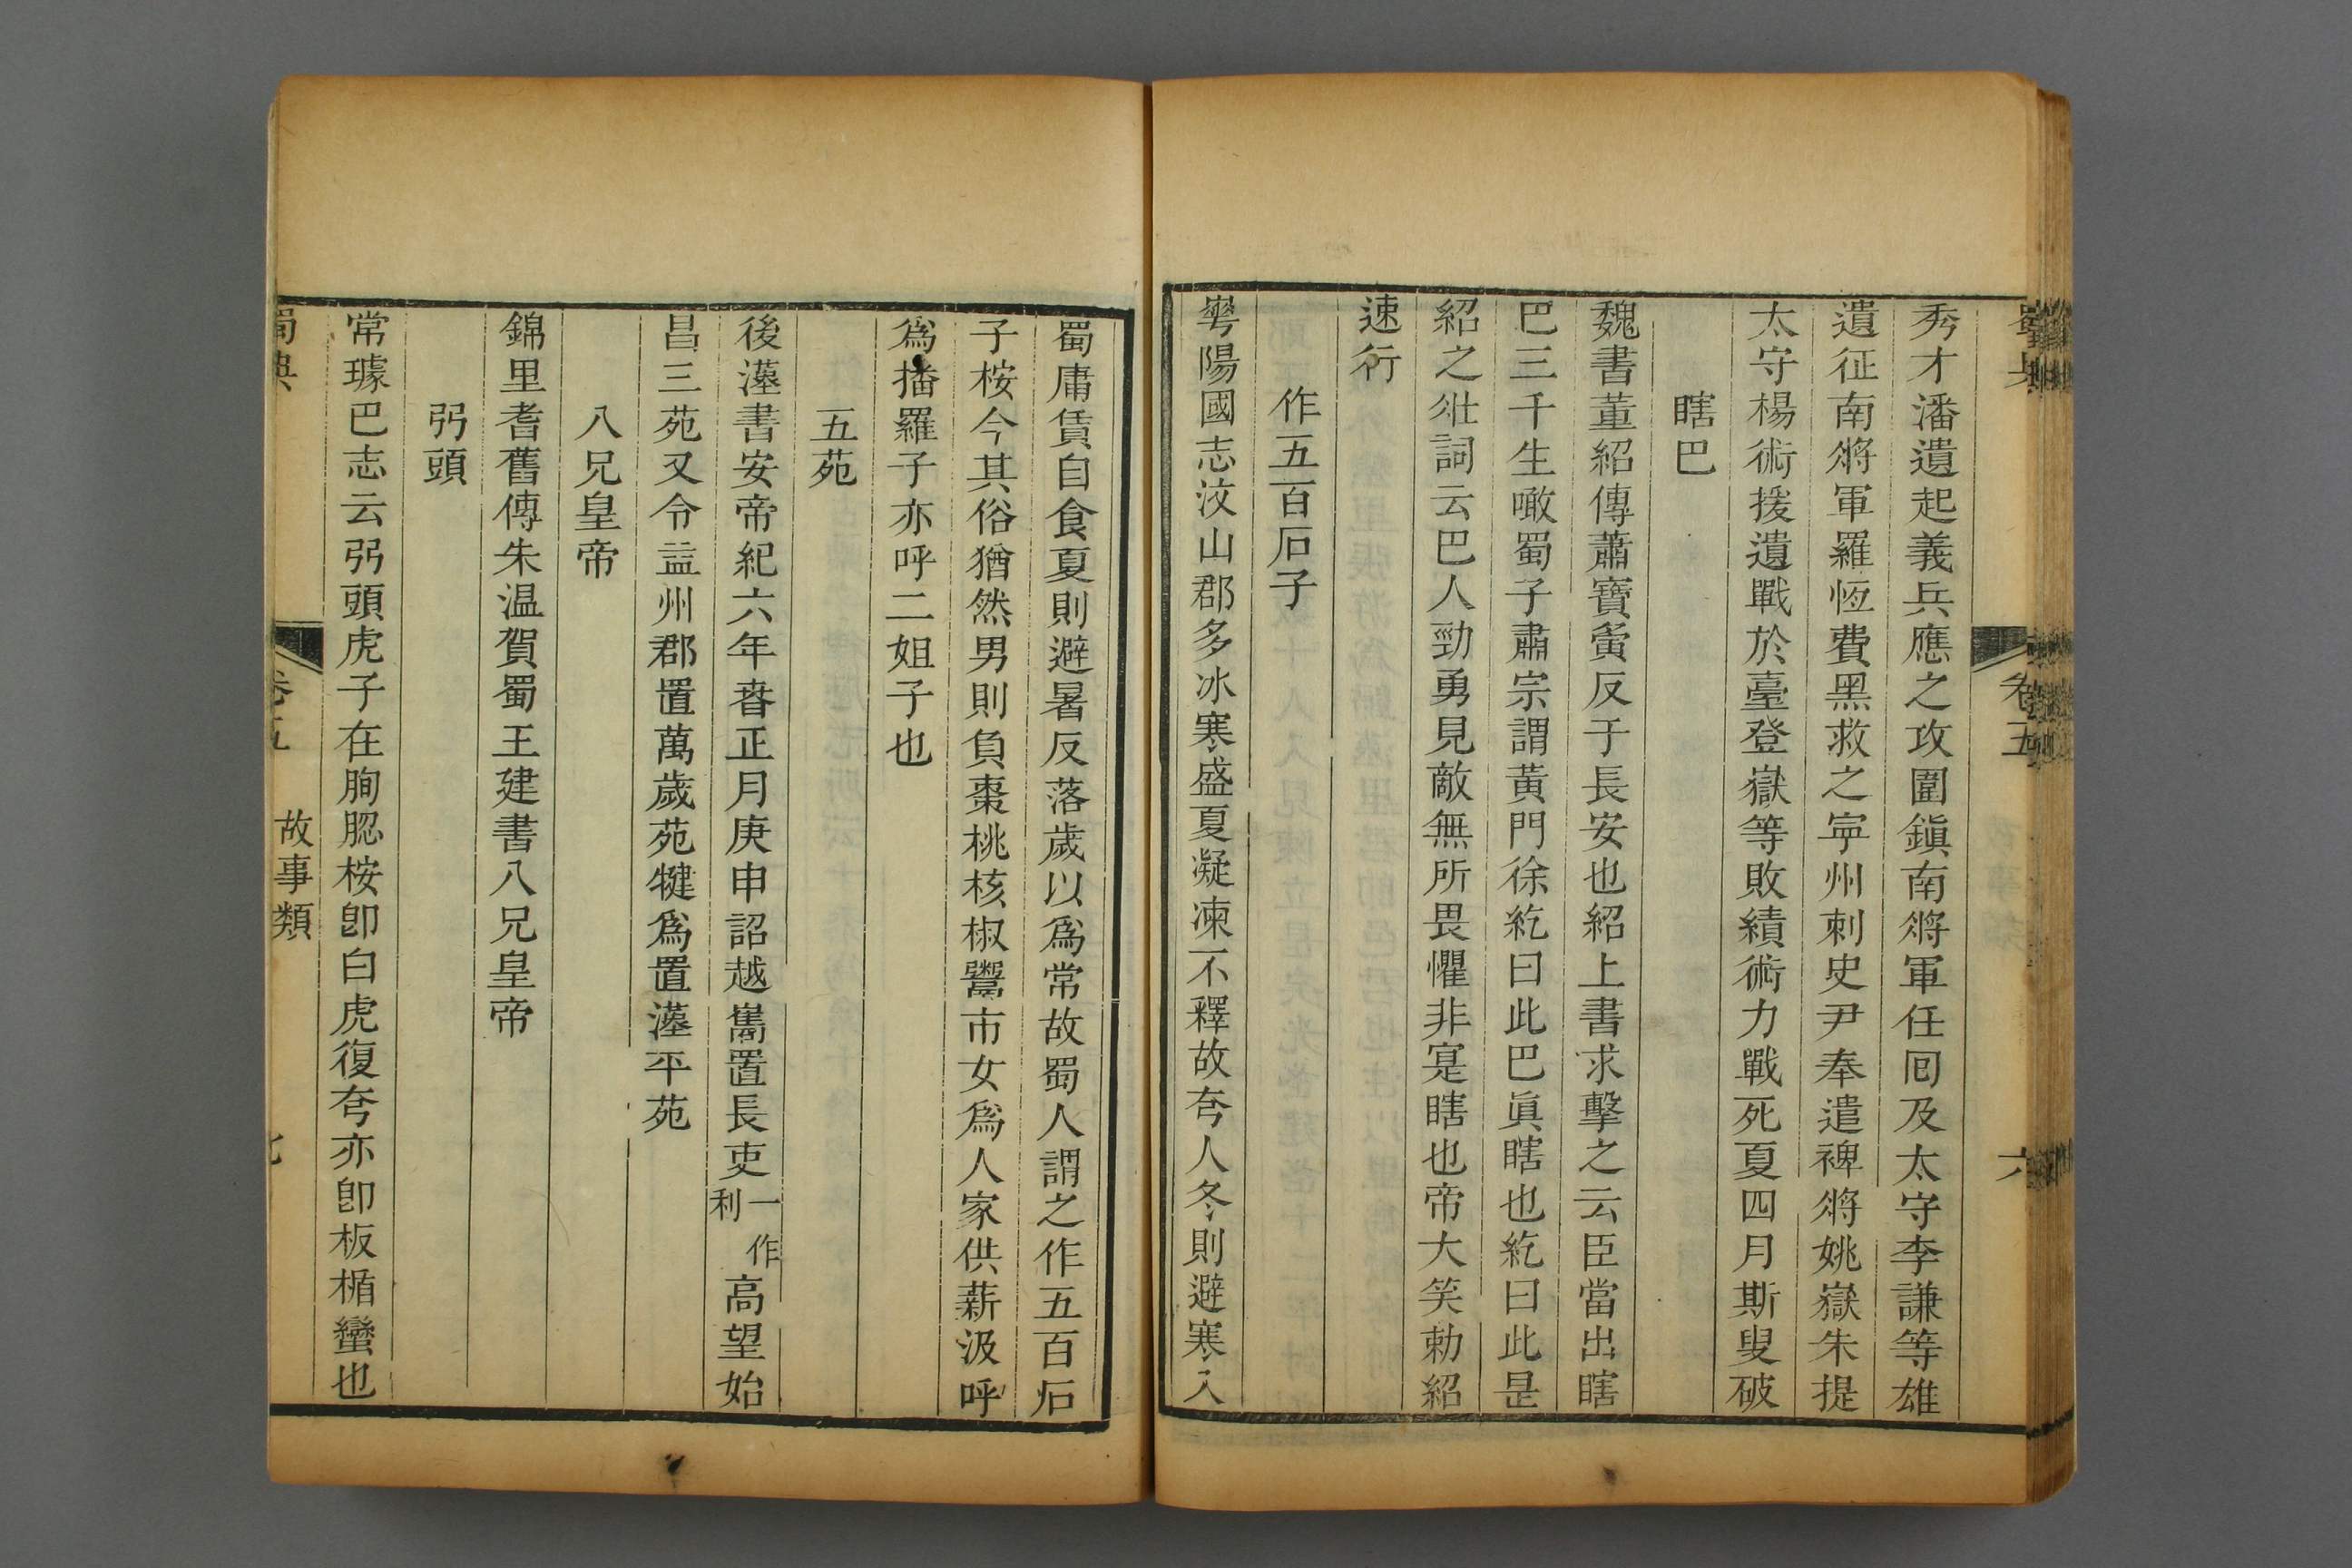 秀才潘遺起義兵應之攻圍鎮南將軍任回及太守李謙等雄
遺征南將軍羅恆費黑救之寧州刺史尹奉遣裨將姚嶽朱提
太守楊術援遺戰於臺登嶽等敗績術力戰死夏四月斯叟破
瞎巴
魏書董紹傳蕭寶夤反于長安也紹上書求擊之云臣當出瞎
巴三千生噉蜀子肅宗謂黃門徐紇曰此巴眞瞎也紇曰此是
紹之壯詞云巴人勁勇見敵無所畏懼非寔瞎也帝大笑勅紹
速行
作五百石子
華陽國志汶山郡多冰寒盛夏凝凍不釋故夸人冬則避寒入
蜀庸賃自食夏則避暑反落歲以爲常故蜀人謂之作五百石
子桉今其俗猶然男則負棗桃核椒鬻市女爲人家供薪汲呼
爲播羅子亦呼二姐子也
五苑
後漢書安帝紀六年春正月庚申詔越巂置長吏一作利高望始
昌三苑又令益州郡置萬歲苑犍爲置漢平苑
八兄皇帝
錦里耆舊傳朱温賀蜀王建書八兄皇帝
弜頭
常璩巴志云弜頭虎子在朐䏰桉卽白虎復夸亦卽板楯蠻也
蜀典
卷五
故事類
七
蜀典
卷五
六